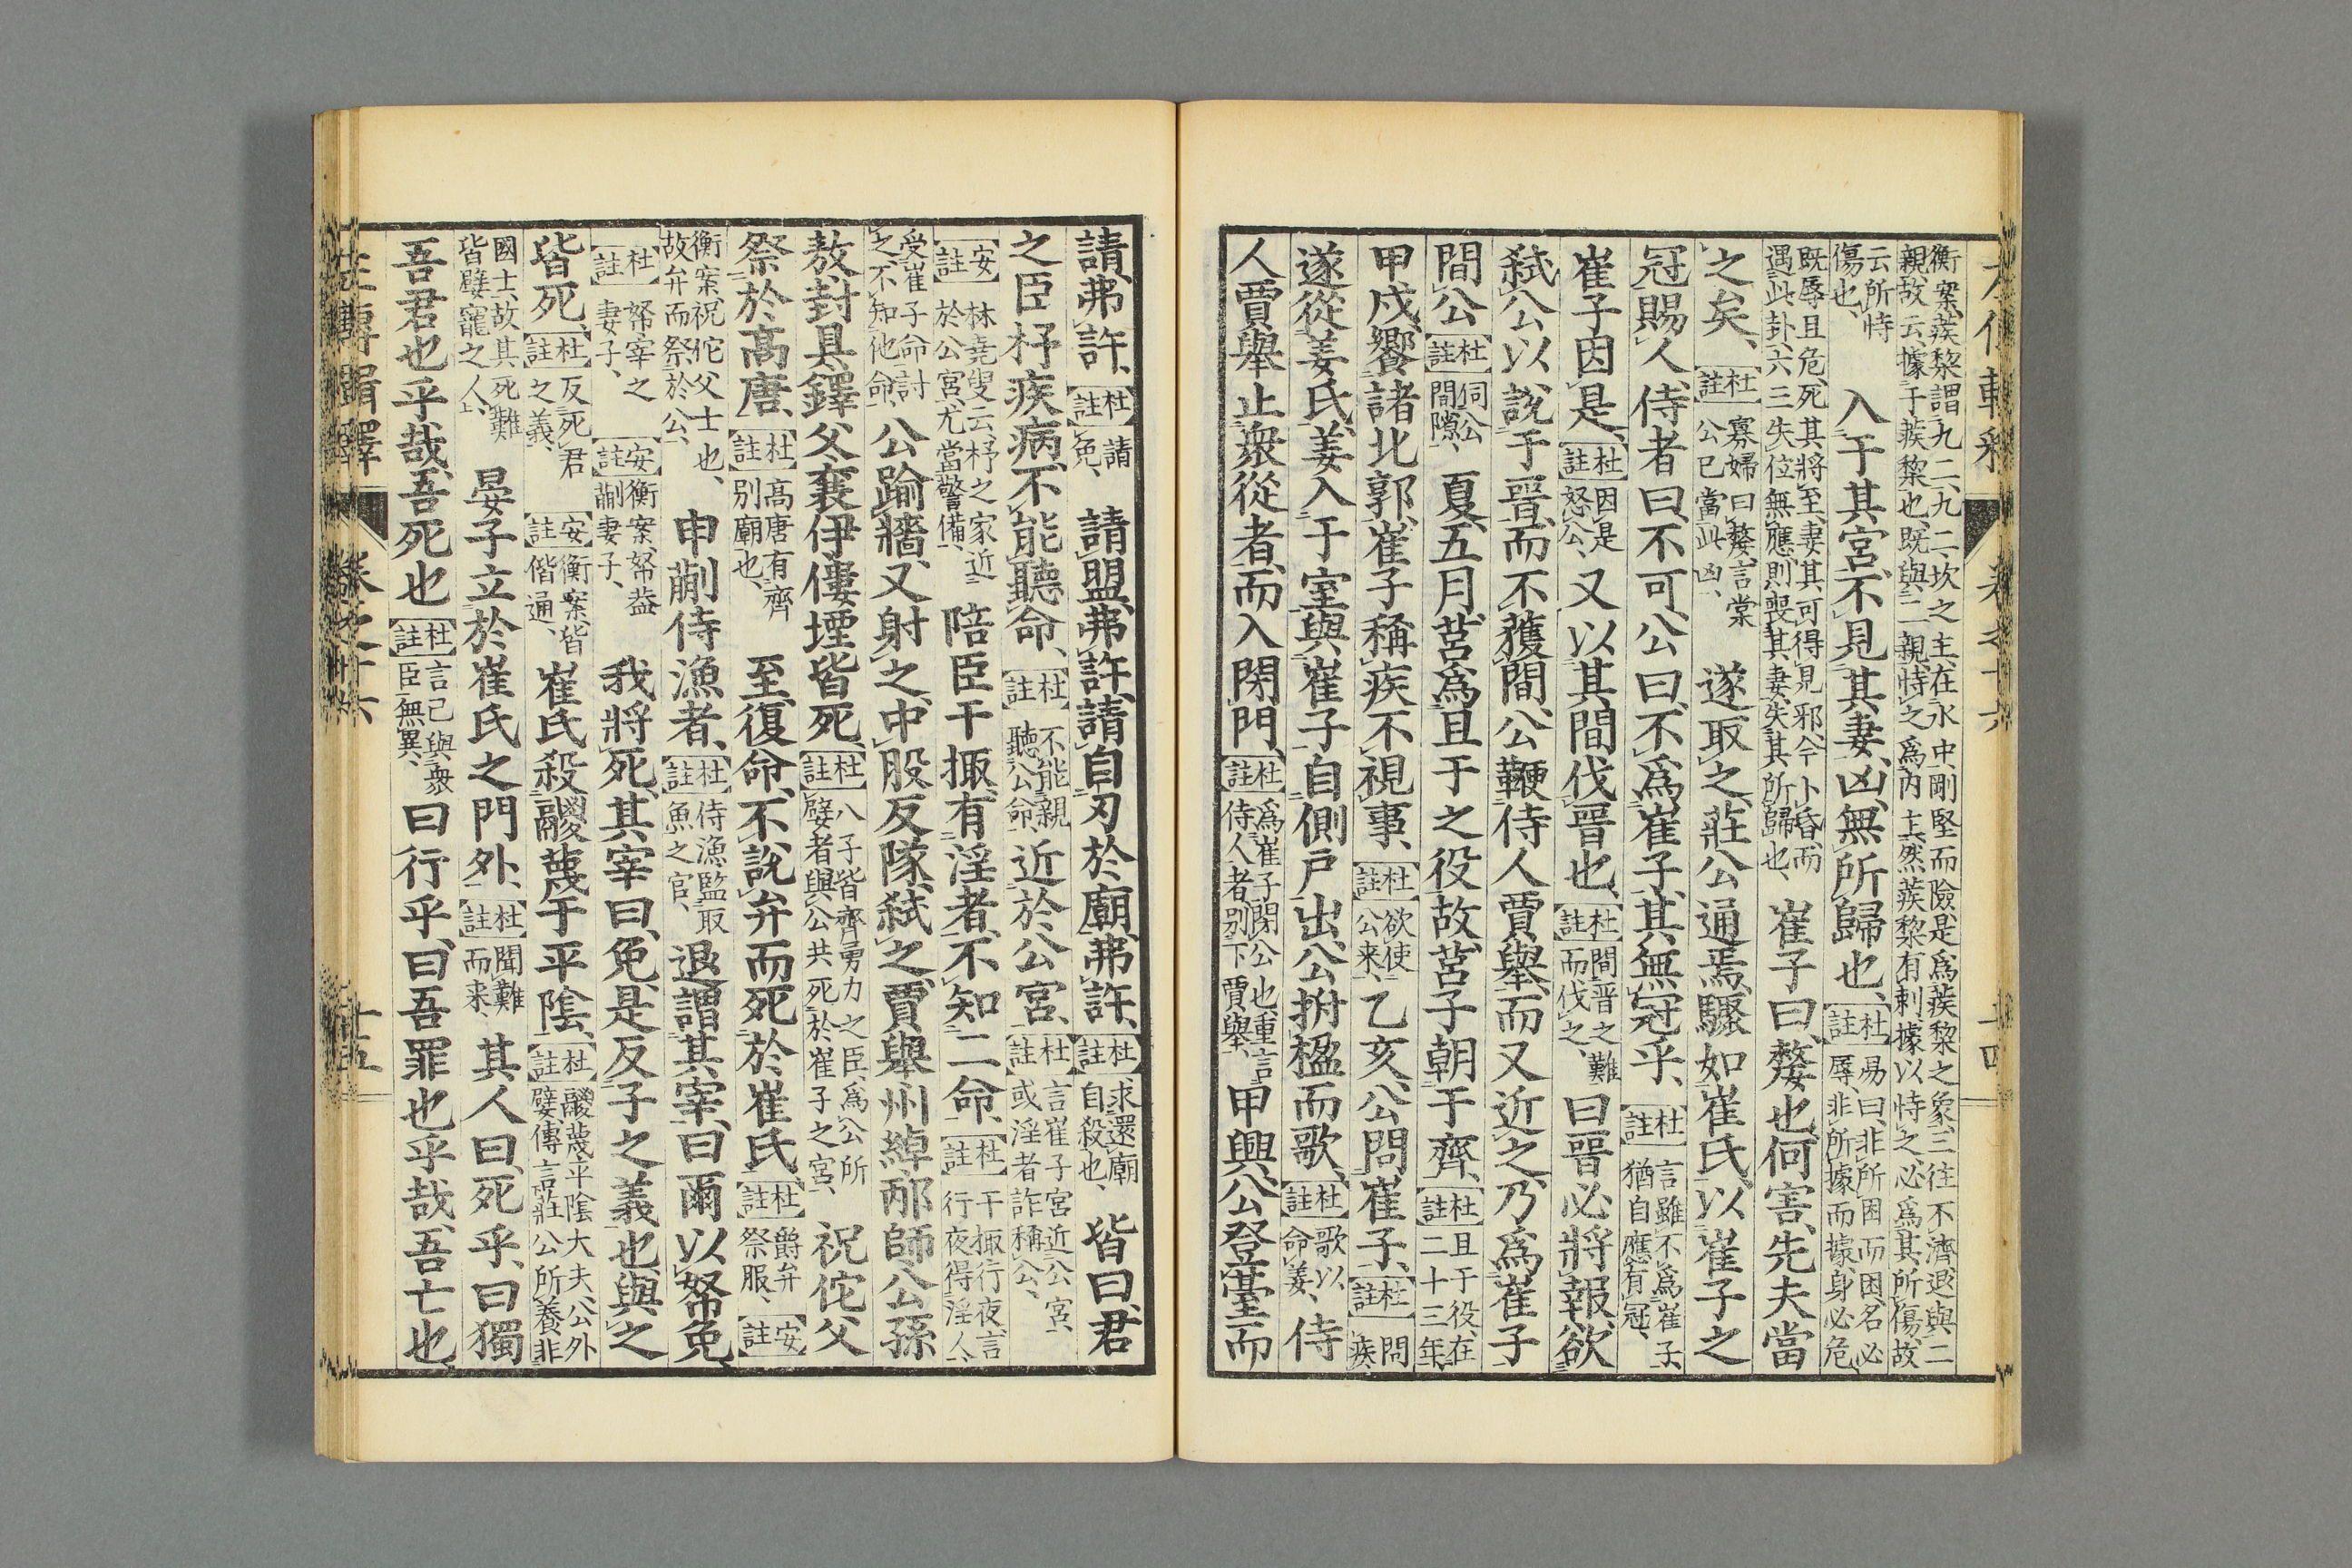 衡案、蒺藜謂九二、九二坎之主、在水中、剛堅而險、是爲蒺藜之象、三往不濟、退與二
親、故云據于蒺藜也、既與二親恃之爲内主、然蒺藜有刺、據以恃之、必爲其所傷、故
云所恃
傷也、
入于其宮、不見其妻、凶、無所歸也、
【杜註】易曰、非所困而困、名必
辱、非所據而據、身必危、
既辱且危、死其將至、妻其可得見邪、今卜昏而
遇此卦、六三失位無應、則喪其妻、失其所歸也、
崔子曰、嫠也何害、先夫當
之矣、
【杜註】寡婦曰嫠、言棠
公已當此凶、
遂取之、莊公通焉、驟如崔氏、以崔子之
冠賜人、侍者曰、不可、公曰、不爲崔子、其無冠乎、
【杜註】言雖不爲崔子、
猶自應有冠、
崔子因是、
【杜註】因是
怒公、
又以其間伐晉也、
【杜註】間晉之難
而伐之、
曰晉必將報、欲
弑公以說于晉、而不獲間、公鞭侍人賈舉、而又近之、乃爲崔子
間公、
【杜註】伺公
間隙、
夏、五月、莒爲且于之役故、莒子朝于齊、
【杜註】且于役、在
二十三年、
甲戌、饗諸北郭、崔子稱疾不視事、
【杜註】欲使
公来、
乙亥、公問崔子、
【杜註】問
疾、
遂從姜氏、姜入于室、與崔子自側戶出、公拊楹而歌、
【杜註】歌以
命姜、
侍
人賈舉止衆從者、而入閉門、
【杜註】爲崔子閉公也、重言
侍人者、别下賈舉、
甲興、公登臺而
左傳輯釋 卷之十六 十四
請、弗許、
【杜註】請
免、
請盟、弗許、請自刃於廟、弗許、
【杜註】求還廟
自殺也、
皆曰、君
之臣杼疾病、不能聽命、
【杜註】不能親
聽公命、
近於公宮、
【杜註】言崔子宮近公宮、
或淫者詐稱公、
【安註】林堯叟云、杼之家近
於公宮、尤當警備、
陪臣干掫有淫者、不知二命、
【杜註】干掫行夜、言
行夜得淫人、
受崔子命討
之、不知他命、
公踰牆、又射之、中股反隊、弑之、賈舉州綽邴師公孫
敖封具鐸父襄伊僂堙皆死、
【杜註】八子皆齊勇力之臣、爲公所
嬖者、與公共死於崔子之宮、
祝佗父
祭於高唐、
【杜註】高唐有齊
别廟也、
至復命、不說弁而死於崔氏、
【杜註】爵弁
祭服、
【安註】
衡案、祝佗父士也、
故弁而祭於公、
申蒯侍漁者、
【杜註】侍漁監取
魚之官、
退謂其宰曰、爾以帑免、
【杜註】帑宰之
妻子、
【安註】衡案、帑葢
蒯妻子、
我將死、其宰曰、免是反子之義也、與之
皆死、
【杜註】反死君
之義、
【安註】衡案、皆
偕通、
崔氏殺鬷蔑于平陰、
【杜註】鬷蔑平陰大夫、公外
嬖、傳言莊公所養非
國士、故其死難
皆嬖寵之人、
晏子立於崔氏之門外、
【杜註】聞難
而来、
其人曰、死乎、曰、獨
吾君也乎哉、吾死也、
【杜註】言己與衆
臣無異、
曰行乎、曰吾罪也乎哉、吾亡也、
左傳輯釋 卷之十六 十五